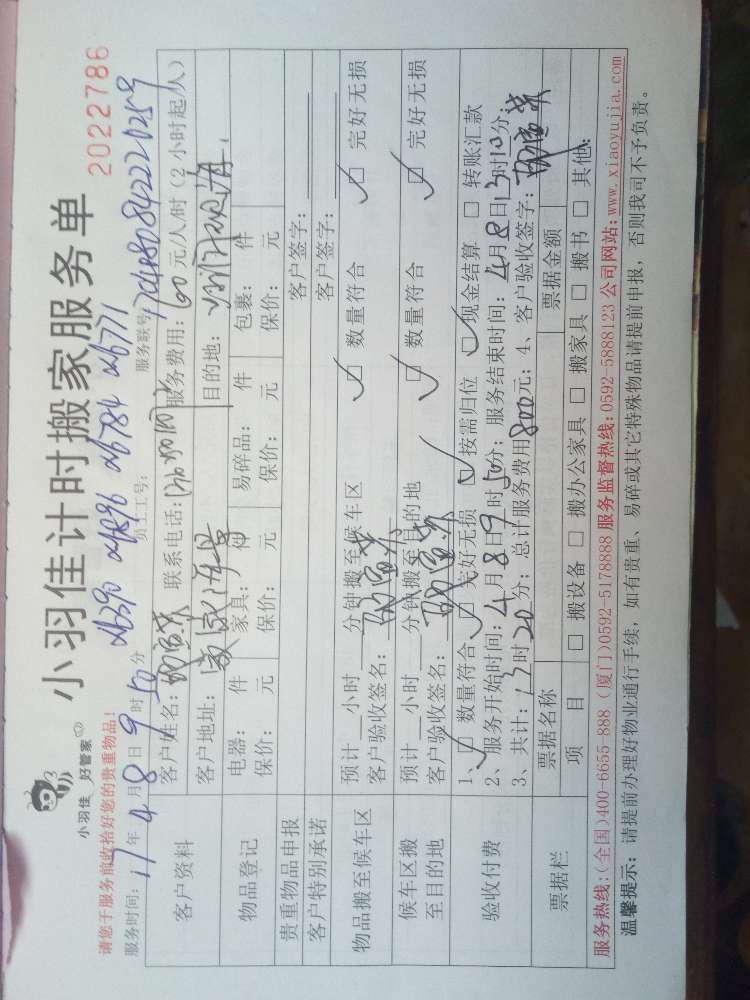 小羽佳 好管家
小羽佳计时搬家服务单
2022786
请您于服务前收拾好您的贵重物品!
服务时间: 17 年 4 月 8 日 9 时 50 分 员工工号: 服务联号:
客户资料
客户姓名: 联系电话: 服务费用: 60 元/人/时(2小时起/人)
客户地址: 目的地:
物品登记
电器: 件 家具: 件 易碎品: 件 包裹: 件
保价: 元 保价: 元 保价: 元 保价: 元
贵重物品申报 客户签字:
客户特别承诺 客户签字:
物品搬至候车区
预计 小时 分钟搬至候车区 ☑ 数量符合 ☑ 完好无损
客户验收签名:
候车区搬至目的地
预计 小时 分钟搬至目的地 ☑ 数量符合 ☑ 完好无损
客户验收签名:
验收付费
1、☑ 数量符合 ☑ 完好无损 ☑ 按需归位 ☑ 现金结算 □ 转账汇款
2、服务开始时间: 4 月 8 日 9 时 50 分; 服务结束时间: 4 月 8 日 13 时 10 分;
3、共计: 时 20 分; 总计服务费用 800 元; 4、客户验收签字:
票据栏
票据名称 票据金额
项 目 □ 搬设备 □ 搬办公家具 □ 搬家具 □ 搬书 □ 其他:
服务热线:(全国)400-6655-888 (厦门)0592-5178888 服务监督热线:0592-5888123 公司网站:www.xiaoyujia.com
温馨提示: 请提前办理好物业通行手续,如有贵重、易碎或其它特殊物品请提前申报,否则我司不予负责。